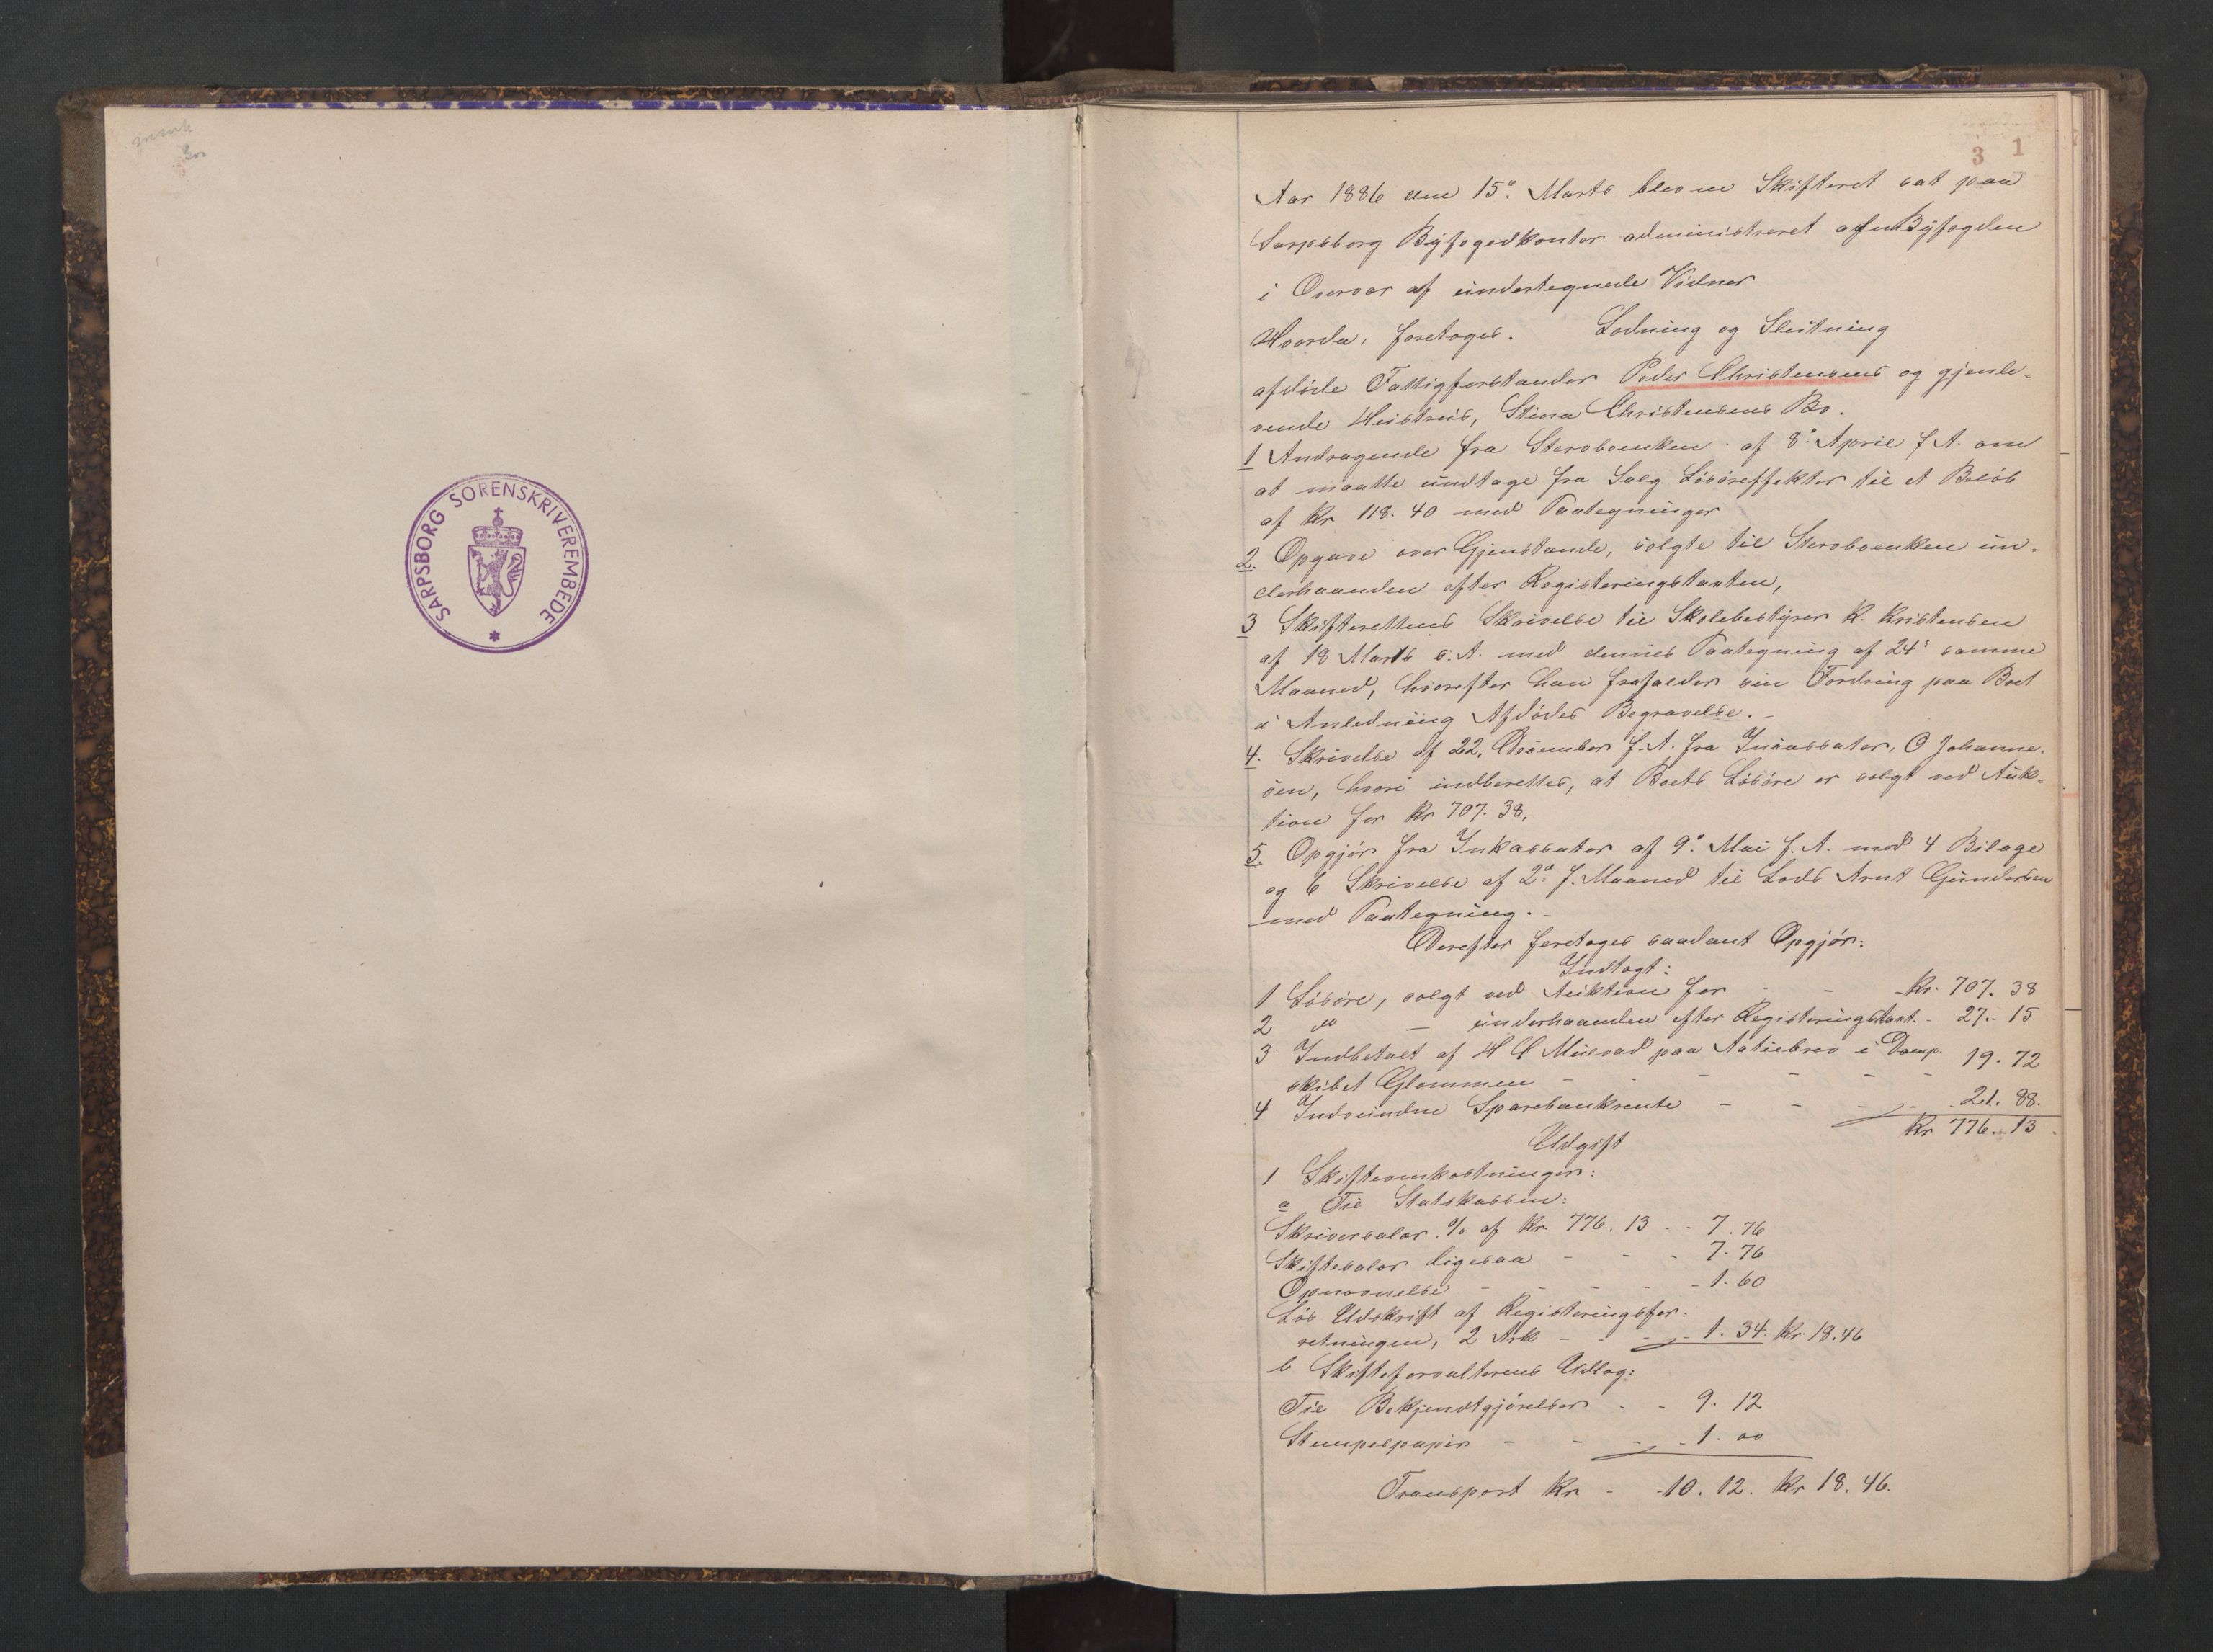 SARPSBORG SORENSKRIVEREMBEDE
3 1
Aar 1886 den 15de Marts blev en Skifteret sat paa
Sarpsborg Byfogedkontor administreret af en Byfogden
i Overvær af undertegnede Vidner
Hvorda, foretoges. Lodning og Slutning
afdøde Fattigforstander Peder Christensens og gjenle-
vende Hustrus, Stina Christensens Bo.
1 Andragende fra Sterboenken af 8de April f. A. om
at maatte undtage fra Salg Løsøreffekter til et Beløb
af Kr 118.40 med Paategninger
2. Opgave over Gjenstande, solgte til Sterboenken un-
derhaanden efter Registeringstaxten,
3 Skifterettens Skrivelse til Skolebestyrer K. Kristensen
af 18 Marts s. A. med dennes Paategning af 24de samme
Maaned, hvorefter han frafalder sin Fordring paa Boet
i Anledning Afdødes Begravelse. -
4. Skrivelse af 22. December f. A. fra Incassator, O Johanne-
sen, hvori indberettes, at Boets Løsøre er solgt ved Auk-
tion for Kr 707.38,
5. Opgjør fra Inkassator af 9de Mai f. A. med 4 Bilage
og 6 Skrivelse af 2den f. Maaned til Lods Arnt Gundersen
med Paategning. -
Derefter foretoges saadant Opgjør:
Indtægt:
1 Løsøre, solgt ved Auktion for - - Kr. 707. 38
2 do - underhaanden efter Registeringstaxt. - 27. - 15
3 Indbetalt af H C Mulvad paa Actiebrev i Damp-
skibet Glommen - - - - - 19. 72
4 Indvundne Sparebankrente - - - - 21. 88.
Kr 776. 13
Udgift
1 Skifteomkostninger:
a Til Statskassen:
Skriversalær % af Kr. 776. 13 - - 7. 76
Skiftesalær ligesaa - - - 7. 76
Opnævnelse - - - - 1. 60
Løs Udskrift af Registeringsfor-
retningen, 2 Ark - - - 1. 34. Kr 18.46
b Skifteforvalterens Udlæg:
Til Bekjendtgjørelser - - 9. 12
Stempelpapir - - - 1. 00
Transport Kr - - 10. 12. Kr 18. 46.